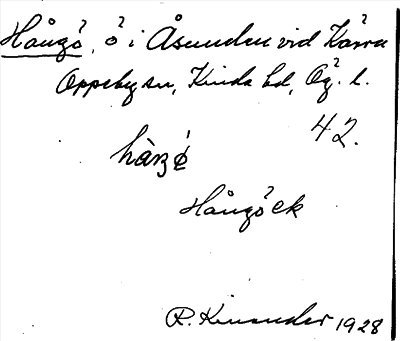 Hångö, ö i Åsunden vid Kärra
Oppeby sn, Kinda hd, Ög. l.
42.
Hångöck
R. Kinander 1928